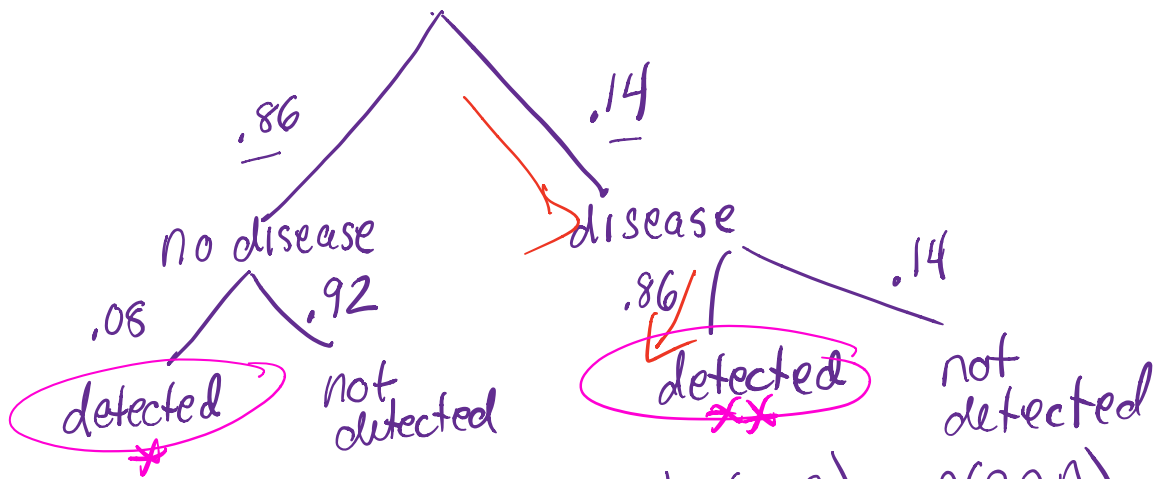 .86
.14
no disease
disease
.08
.92
.86
.14
detected
not
detected
detected
not
detected